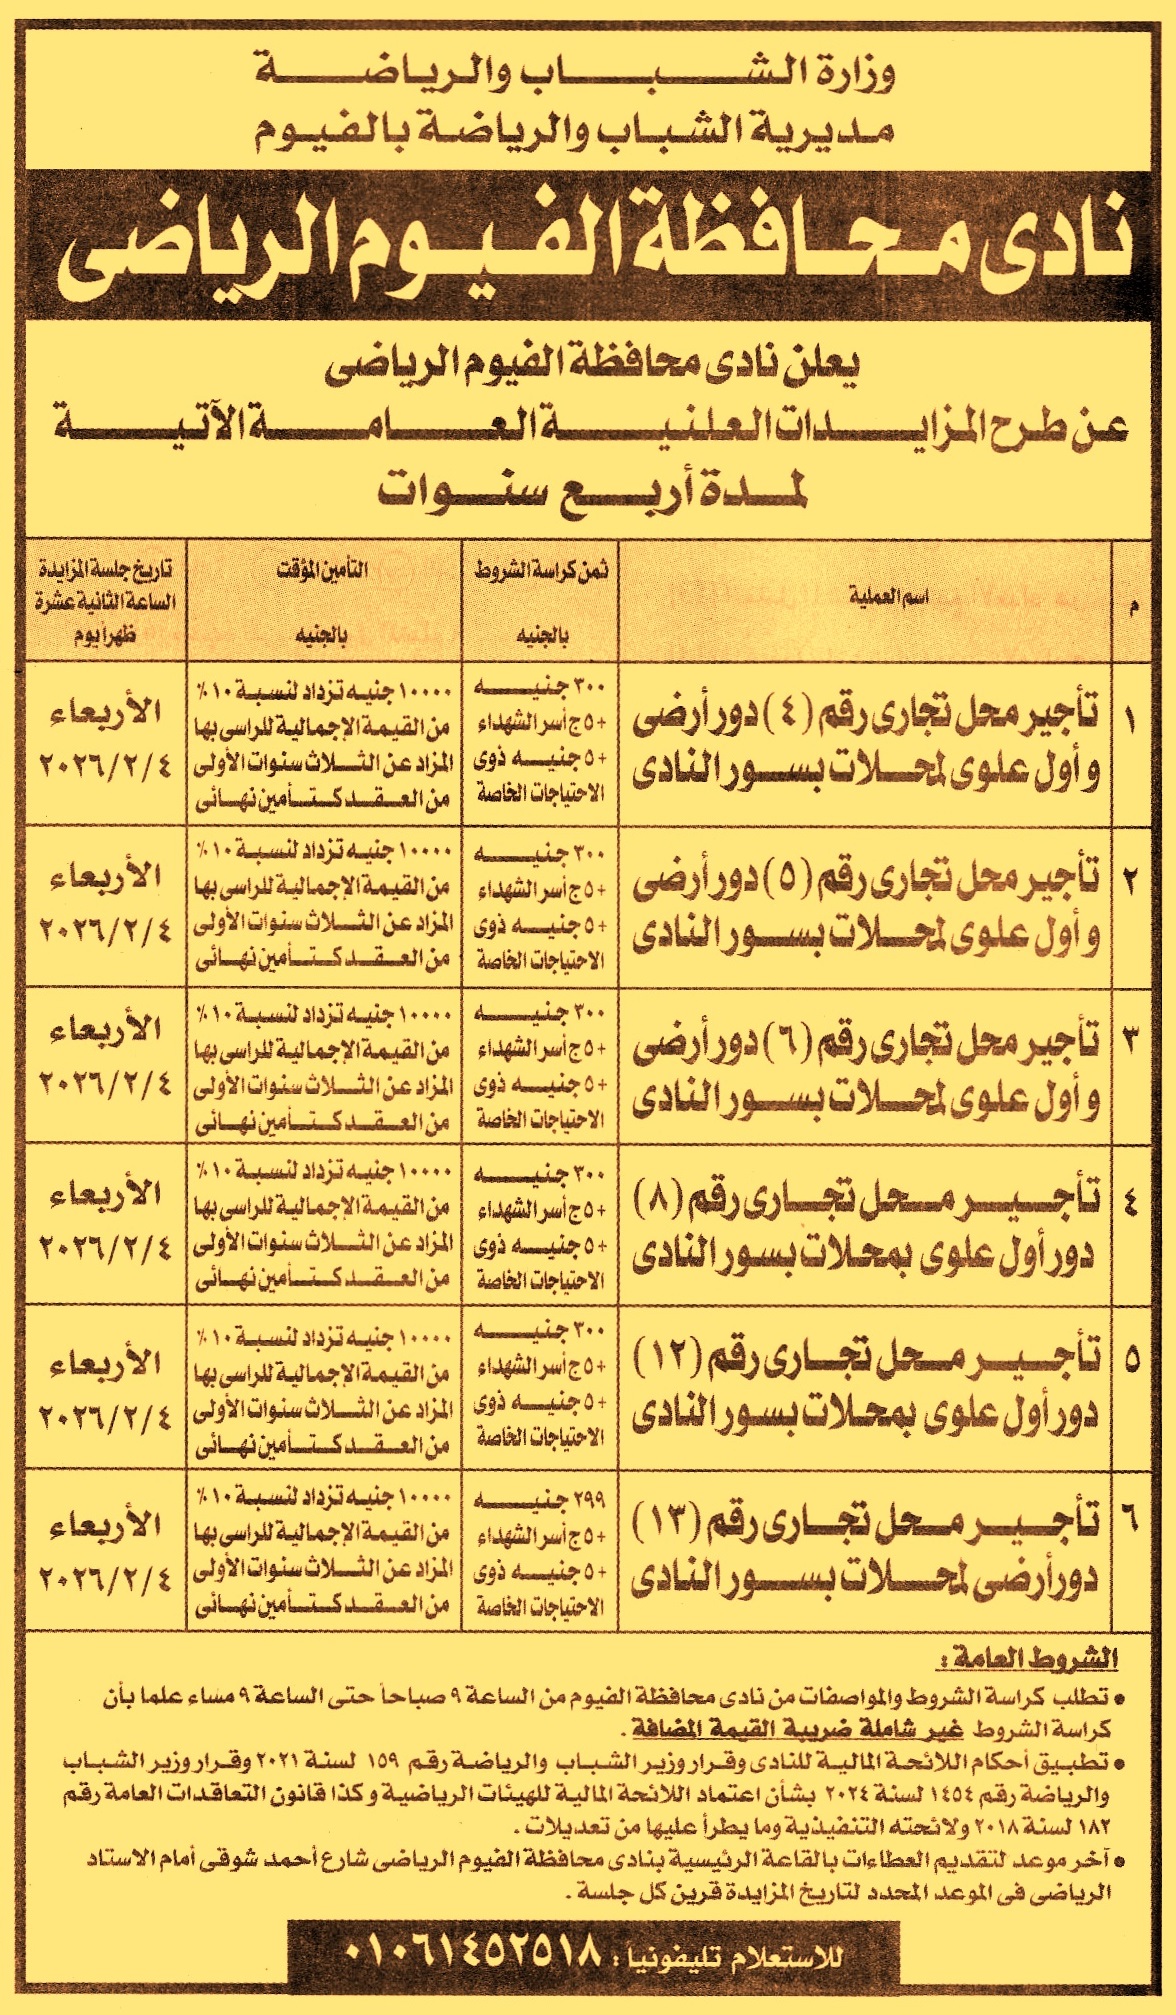 وزارة الشباب والرياضة
مديرية الشباب والرياضة بالفيوم
نادى محافظة الفيوم الرياضى
يعلن نادى محافظة الفيوم الرياضى
عن طرح المزايدات العلنية العامة الآتية
لمدة أربع سنوات
م
اسم العملية
ثمن كراسة الشروط
بالجنيه
التأمين المؤقت
بالجنيه
تاريخ جلسة المزايدة
الساعة الثانية عشرة
ظهراً يوم
١
تأجير محل تجارى رقم (٤) دور أرضى
وأول علوى لمحلات بسور النادى
٣٠٠ جنيه
+٥ ج أسر الشهداء
+٥ جنيه ذوى
الاحتياجات الخاصة
١٠٠٠٠ جنيه تزداد لنسبة ١٠٪
من القيمة الإجمالية للراسى بها
المزاد عن الثلاث سنوات الأولى
من العقد كتأمين نهائى
الأربعاء
٢٠٢٦/٢/٤
٢
تأجير محل تجارى رقم (٥) دور أرضى
وأول علوى لمحلات بسور النادى
٣٠٠ جنيه
+٥ ج أسر الشهداء
+٥ جنيه ذوى
الاحتياجات الخاصة
١٠٠٠٠ جنيه تزداد لنسبة ١٠٪
من القيمة الإجمالية للراسى بها
المزاد عن الثلاث سنوات الأولى
من العقد كتأمين نهائى
الأربعاء
٢٠٢٦/٢/٤
٣
تأجير محل تجارى رقم (٦) دور أرضى
وأول علوى لمحلات بسور النادى
٣٠٠ جنيه
+٥ ج أسر الشهداء
+٥ جنيه ذوى
الاحتياجات الخاصة
١٠٠٠٠ جنيه تزداد لنسبة ١٠٪
من القيمة الإجمالية للراسى بها
المزاد عن الثلاث سنوات الأولى
من العقد كتأمين نهائى
الأربعاء
٢٠٢٦/٢/٤
٤
تأجير محل تجارى رقم (٨)
دور أول علوى بمحلات بسور النادى
٣٠٠ جنيه
+٥ ج أسر الشهداء
+٥ جنيه ذوى
الاحتياجات الخاصة
١٠٠٠٠ جنيه تزداد لنسبة ١٠٪
من القيمة الإجمالية للراسى بها
المزاد عن الثلاث سنوات الأولى
من العقد كتأمين نهائى
الأربعاء
٢٠٢٦/٢/٤
٥
تأجير محل تجارى رقم (١٢)
دور أول علوى بمحلات بسور النادى
٣٠٠ جنيه
+٥ ج أسر الشهداء
+٥ جنيه ذوى
الاحتياجات الخاصة
١٠٠٠٠ جنيه تزداد لنسبة ١٠٪
من القيمة الإجمالية للراسى بها
المزاد عن الثلاث سنوات الأولى
من العقد كتأمين نهائى
الأربعاء
٢٠٢٦/٢/٤
٦
تأجير محل تجارى رقم (١٣)
دور أرضى لمحلات بسور النادى
٢٩٩ جنيه
+٥ ج أسر الشهداء
+٥ جنيه ذوى
الاحتياجات الخاصة
١٠٠٠٠ جنيه تزداد لنسبة ١٠٪
من القيمة الإجمالية للراسى بها
المزاد عن الثلاث سنوات الأولى
من العقد كتأمين نهائى
الأربعاء
٢٠٢٦/٢/٤
الشروط العامة :
• تطلب كراسة الشروط والمواصفات من نادى محافظة الفيوم من الساعة ٩ صباحاً حتى الساعة ٩ مساء علما بأن
كراسة الشروط غير شاملة ضريبة القيمة المضافة .
• تطبيق أحكام اللائحة المالية للنادى وقرار وزير الشباب والرياضة رقم ١٥٩ لسنة ٢٠٢١ وقرار وزير الشباب
والرياضة رقم ١٤٥٤ لسنة ٢٠٢٤ بشأن اعتماد اللائحة المالية للهيئات الرياضية وكذا قانون التعاقدات العامة رقم
١٨٢ لسنة ٢٠١٨ ولائحته التنفيذية وما يطرأ عليها من تعديلات .
• آخر موعد لتقديم العطاءات بالقاعة الرئيسية بنادى محافظة الفيوم الرياضى شارع أحمد شوقى أمام الاستاد
الرياضى فى الموعد المحدد لتاريخ المزايدة قرين كل جلسة .
للاستعلام تليفونياً : ٠١٠٦١٤٥٢٥١٨